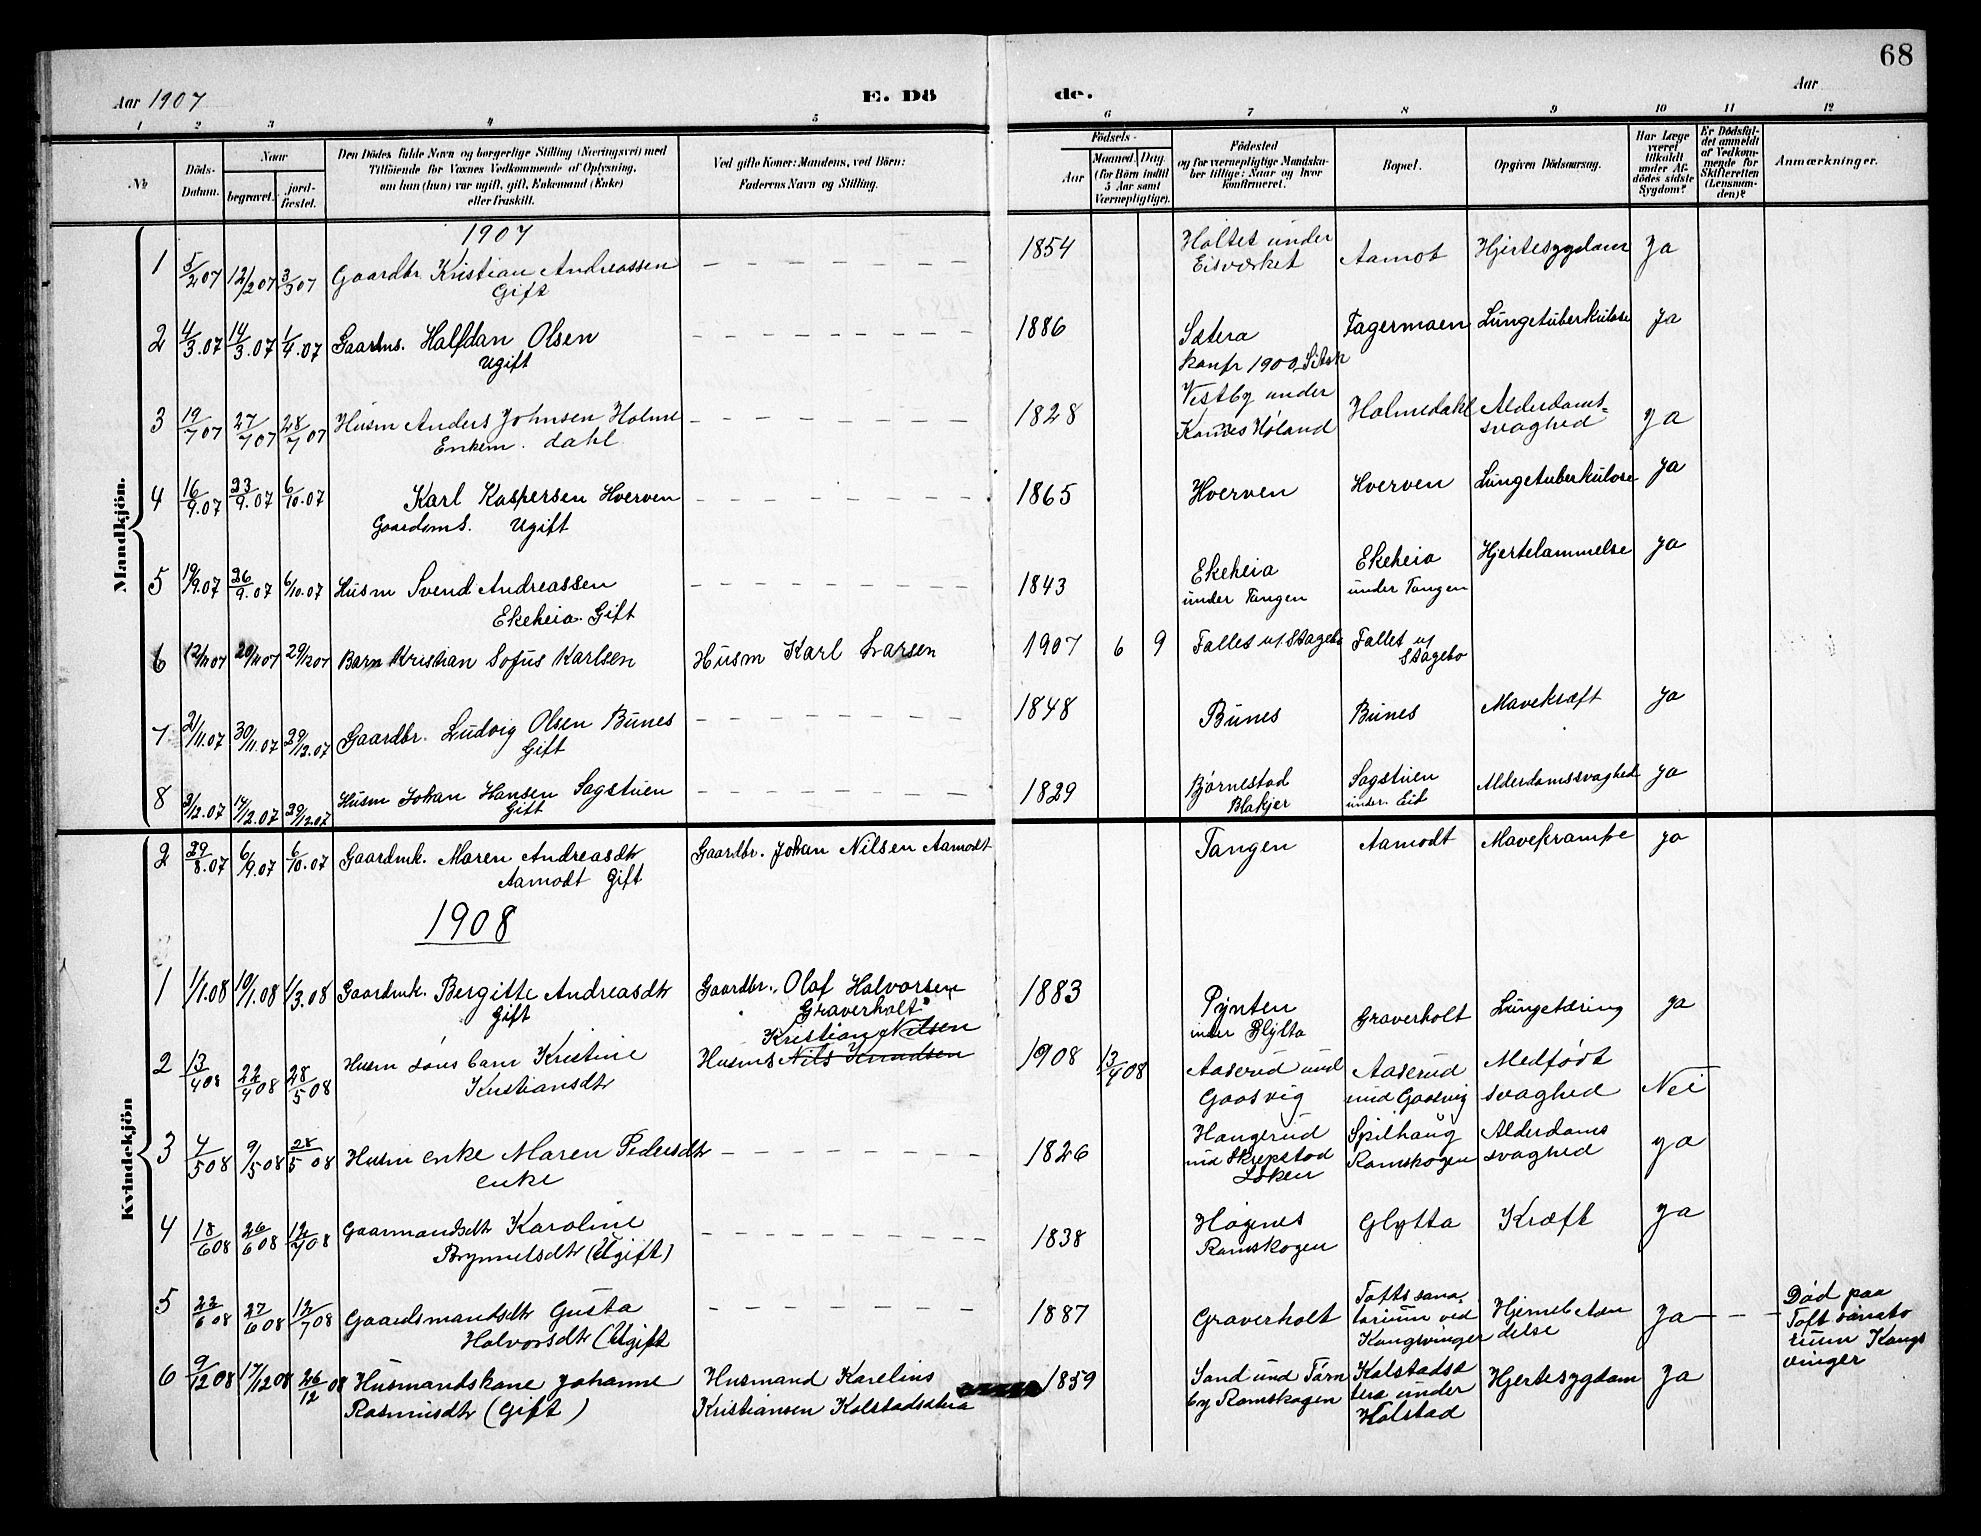 68
Aar 1907
E. Dö
de.
Aar
1 2 3 4 5 6 7 8 9 10 11 12
No
Döds-Datum.
Naar
begravet.
jord-fæstet.
Den Dödes fulde Navn og borgerlige Stilling (Næringsvei) med
Tilföiende for Voxnes Vedkommende af Oplysning,
om han (hun) var ugift, gift, Enkemand (Enke)
eller fraskilt.
Ved gifte Koner: Mandens, ved Börn:
Faderens Navn og Stilling.
Födsels-
Aar
Maaned. Dag.
(for Börn indtil
5 Aar samt
Værnepligtige).
Födested
og for værnepligtige Mandska-
ber tillige: Naar og hvor
konfirmeret.
Bopæl.
Opgiven Dödsaarsag.
Har Læge
været
tilkaldt
under Af-
dödes sidste
Sygdom?
Er Dödsfal-
det anmeldt
af Vedkom-
mende for
Skifteretten
(Lensman-
den)?
Anmærkninger.
Mandkjön.
1907
1 5/2 07 12/2 07 3/3 07 Gaardbr. Kristian Andreassen 1854 Holtet under Aamot Hjertesygdom Ja
Gift Eisværket
2 4/3.07 14/3.07 1/4.07 Gaardms. Halfdan Olsen 1886 Sætera Fagermoen Lungetuberkulose Ja
Ugift konfr 1900
3 19/7 07 27/7 07 28/7 07 Husm Anders Johnsen Holme 1828 Vestby under Holmedahl Alderdoms- Ja
Enkem. dahl Høland svaghed
4 16/9.07 23/9.07 6/10.07 Karl Kaspersen Hverven 1865 Hverven Hverven Lungetuberkulose Ja
Gaardems. Ugift
5 19/9.07 26/9.07 6/10.07 Husm Svend Andreassen 1843 Ekeheia Ekeheia Hjertelammelse Ja
Ekeheia. Gift under Tangen under Tangen
6 12/11 07 20/11 07 29/12 07 Barn Kristian Sofus Karlsen Husm Karl Larsen 1907 6 9 Fallet u/ Skagebo Fallet u/
Skagebo
7 21/11.07 30/11.07 29/12.07 Gaardbr. Ludvig Olsen Bunes 1848 Bunes Bunes Mavekræft Ja
Gift
8 3/12.07 17/12.07 29/12.07 Husm Johan Hansen Sagstuen 1829 Bjørnestad Sagstuen Alderdomssvaghed Ja
Gift Blakjer under. Eid
Kvindekjön
2 29/8.07 6/9.07 6/10.07 Gaardmk. Maren Andreasdtr Gaardbr. Johan Nilsen Aamodt Tangen Aamodt Mavekrampe Ja
Aamodt Gift
1908
1 1/1.08 10/1.08 1/3.08 Gaardmk. Bergitte Andreasdtr Gaardbr. Olaf Halvorsen 1883 Pynten Graverholt Lungetæring Ja
Gift Graverholt under Glytta
Kristian Nilsen
2 13/4 08 22/4 08 28/5 08 Husm søns barn Kristine Husms Nils Knudsen 1908 13/4 08 Aaserud und Aaserud Medfødt Nei
Kristiansdtr Gaasvig und Gaasvig svaghed
3 4/5 08 9/5 08 28/5 08 Husm enke Maren Pedersdtr 1826 Haugerud Spilhaug Alderdoms Ja
enke und Skrepstad Ramskogen svaghed
Løken
4 18/6 08 26/6 08 12/7 08 Gaarmandsdtr Karoline 1838 Høgnes Glytta Kræft Ja
Brynnelsdtr (Ugift) Ramskogen
5 22/6 08 27/6 08 12/7 08 Gaardsmandsdtr Gusta 1887 Graverholt Tofts sana- Hjernebetæn Ja Død paa
Halvorsdtr (Ugift torium ved delse Toft sanato
Kongsvinger rium Kongs
vinger
6 9/12 08 17/12 08 26/12 08 Husmandskone Johanne Husmand Karelius 1859 Sand und Tørn Kolstadsæ Hjertesygdom Ja
Rasmusdtr (Gift) Kristiansen Kolstadsætra by Ramskogen tera under
Kolstad